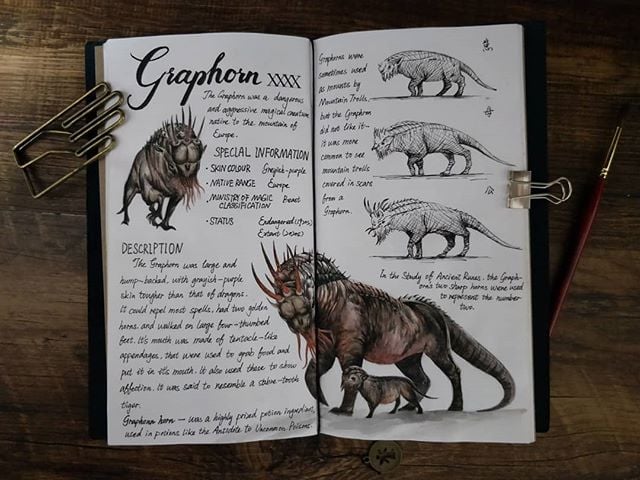 Graphorn XXXX
The Graphorn was a dangerous
and aggressive magical creature
native to the mountain of
Europe.
SPECIAL INFORMATION
• SKIN COLOUR Greyish-purple
• NATIVE RANGE Europe
• MINISTRY OF MAGIC Beast
CLASSIFICATION
• STATUS Endangered
Extant
DESCRIPTION
The Graphorn was large and
hump-backed, with grayish-purple
skin tougher than that of dragons.
It could repel most spells, had two golden
horns, and walked on large four-thumbed
feet. It's mouth was made of tentacle-like
appendages, that were used to grab food and
put it in it's mouth. It also used these to show
affection. It was said to resemble a sabre-tooth
tiger.
Graphorn horn — was a highly prized potion ingredient,
used in potions like the Antidote to Uncommon Poisons.
Graphorns were
sometimes used
as mounts by
Mountain Trolls,
but the Graphorn
did not like it—
it was more
common to see
mountain trolls
covered in scars
from a
Graphorn.
母
In the Study of Ancient Runes, the Graph-
orn's two sharp horns were used
to represent the number
two.